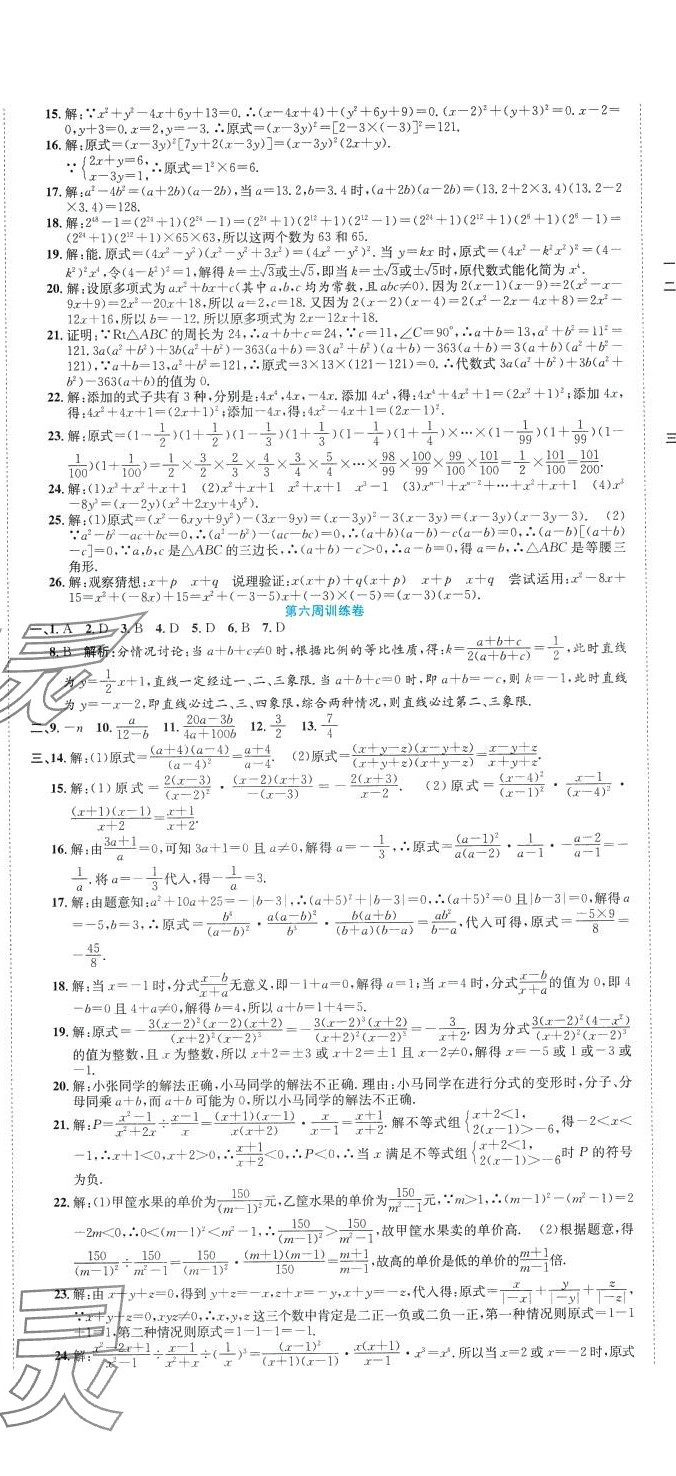 15. 解:∵x²+y²-4x+6y+13=0. ∴(x-4x+4)+(y²+6y+9)=0. (x-2)²+(y+3)²=0. x-2=
0,y+3=0. x=2,y=-3. ∴原式=(x-3y)²=[2-3×(-3)]²=121.
16. 解:原式=(x-3y)²[7y+2(x-3y)]=(x-3y)²(2x+y).
∵{2x+y=6, x-3y=1. ∴原式=1²×6=6.
17. 解:a²-4b²=(a+2b)(a-2b),当a=13.2,b=3.4时,(a+2b)(a-2b)=(13.2+2×3.4)(13.2-2
×3.4)=128.
18. 解:2⁴⁸-1=(2²⁴+1)(2²⁴-1)=(2²⁴+1)(2¹²+1)(2¹²-1)=(2²⁴+1)(2¹²+1)(2⁶+1)(2⁶-1)=
(2²⁴+1)(2¹²+1)×65×63,所以这两个数为63和65.
19. 解:能.原式=(4x²-y²)(x²-y²+3x²)=(4x²-y²)².当y=kx时,原式=(4x²-k²x²)²=(4-
k²)²x⁴,令(4-k²)²=1,解得k=±√3或±√5,即当k=±√3或±√5时,原代数式能化简为x⁴.
20. 解:设原多项式为ax²+bx+c(其中a,b,c均为常数,且abc≠0).因为2(x-1)(x-9)=2(x²-x-
9x+9)=2x²-20x+18,所以a=2,c=18.又因为2(x-2)(x-4)=2(x²-2x-4x+8)=2x²-
12x+16,所以b=-12.所以原多项式为2x-12x+18.
21. 证明:∵Rt△ABC的周长为24,∴a+b+c=24,∵c=11,∠C=90°,∴a+b=13,a²+b²=11²=
121.3a(a²+b²)+3b(a²+b²)-363(a+b)=3(a²+b²)(a+b)-363(a+b)=3(a+b)(a²+b²-
121),∵a+b=13,a²+b²=121,∴原式=3×13×(121-121)=0.∴代数式3a(a²+b²)+3b(a²+
b²)-363(a+b)的值为0.
22. 解:添加的式子共有3种,分别是:4x⁴,4x,-4x.添加4x⁴,得:4x⁴+4x²+1=(2x²+1)²;添加4x,
得:4x²+4x+1=(2x+1)²;添加-4x,得:4x²-4x+1=(2x-1)².
23. 解:原式=(1-1/2)(1+1/2)(1-1/3)(1+1/3)(1-1/4)(1+1/4)×…×(1-1/99)(1+1/99)(1-
1/100)(1+1/100)=1/2×3/2×2/3×4/3×3/4×5/4×…×98/99×100/99×99/100×101/100=1/2×101/100=101/200.
24. 解:(1)x³+x²+x+1 (2)x²+x+1 x²+x+1 x-1 (3)xⁿ⁻¹+xⁿ⁻²+…+x²+x+1 (4)x³
-8y³=(x-2y)(x²+2xy+4y²).
25. 解:(1)原式=(x²-6xy+9y²)-(3x-9y)=(x-3y)²-3(x-3y)=(x-3y)(x-3y-3). (2)
∵a²-b²-ac+bc=0,∴(a²-b²)-(ac-bc)=0,∴(a+b)(a-b)-c(a-b)=0,∴(a-b)[(a+b)
-c]=0,∵a,b,c是△ABC的三边长,∴(a+b)-c>0,∴a-b=0,得a=b,∴△ABC是等腰三
角形.
26. 解:观察猜想:x+p x+q 说理验证:x(x+p) q(x+p) x+p x+q 尝试运用:x²-8x+
15=x²+(-3-5)x+(-3)×(-5)=(x-3)(x-5).
第六周训练卷
一、1. A 2. D 3. B 4. D 5. D 6. B 7. D
8. B 解析:分情况讨论:当a+b+c≠0时,根据比例的等比性质,得:k=(a+b+c)/2(a+b+c)=1/2,此时直线
为y=1/2x+1,直线一定经过一、二、三象限.当a+b+c=0时,即a+b=-c,则k=-1,此时直线
为y=-x-2,即直线必过二、三、四象限,综合两种情况,则直线必过第二、三象限.
二、9. -n 10. a/(12-b) 11. (20a-3b)/(4a+100b) 12. 3/2 13. 7/4
三、14. 解:(1)原式=(a+4)(a-4)/(a-4)²=(a+4)/(a-4). (2)原式=(x+y-z)(x-y+z)/(x+y+z)(x+y-z)=(x-y+z)/(x+y+z).
15. 解:(1)原式=2(x-3)/(x-2)²·(x-2)(x+3)/-(x-3)=-2(x+3)/(x-2). (2)原式=(x-4)²/(x-2)²·(x-1)/(x-4)²·
(x+1)(x-1)/(x+2)=(x+1)/(x+2).
16. 解:由(3a+1)/a=0,可知3a+1=0且a≠0,解得a=-1/3,∴原式=(a-1)²/a(a-2)·1/(a-1)·(-a-2)/(a-1)=-
1/a.将a=-1/3代入,得-1/a=3.
17. 解:由题意知:a²+10a+25=-|b-3|,∴(a+5)²+|b-3|=0,∴(a+5)²=0且|b-3|=0,解得a
=-5,b=3,∴原式=b⁴/(a-b)²·a(a-b)²/b³·b(a+b)/(a+b)(b-a)=ab²/(b-a),代入可得,原式=(-5×9)/8=
-45/8.
18. 解:当x=-1时,分式(x-b)/(x+a)无意义,即-1+a=0,解得a=1;当x=4时,分式(x-b)/(x+a)的值为0,即4
-b=0且4+a≠0,解得b=4,所以a+b=1+4=5.
19. 解:原式=-3(x-2)²(x-2)(x+2)/(x+2)²(x-2)³=-3(x-2)³(x+2)/(x+2)²(x-2)³=-3/(x+2).因为分式3(x-2)²(4-x²)/(x+2)²(x-2)³
的值为整数,且x为整数,所以x+2=±3或x+2=±1且x-2≠0,解得x=-5或1或-3或
-1.
20. 解:小张同学的解法正确,小马同学的解法不正确.理由:小马同学在进行分式的变形时,分子、分
母同乘a-b,而a-b可能为0,所以小马同学的解法不正确.
21. 解:P=(x²-1)/(x²+2x)÷(x-1)/x=(x+1)(x-1)/x(x+2)·x/(x-1)=(x+1)/(x+2).解不等式组{x+2<1, 2(x-1)>-6,得-2<x<
-1,∴x+1<0,x+2>0,∴(x+1)/(x+2)<0,∴P<0,∴当x满足不等式组{x+2<1, 2(x-1)>-6时P的符号
为负.
22. 解:(1)甲筐水果的单价为150/(m-1)²元,乙筐水果的单价为150/(m²-1)元,∵m>1,∴(m-1)²-(m²-1)=2
-2m<0,∴0<(m-1)²<m²-1,∴150/(m-1)²>150/(m²-1),故甲筐水果卖的单价高. (2)根据题意,得
150/(m-1)²÷150/(m²-1)=150/(m-1)²·(m+1)(m-1)/150=(m+1)/(m-1),故高的单价是低的单价的(m+1)/(m-1)倍.
23. 解:由x+y+z=0,得到y+z=-x,x+z=-y,x+y=-z,代入得:原式=x/|-x|+y/|-y|+z/|-z|,
∵x+y+z=0,xyz≠0,∴x,y,z这三个数中肯定是二正一负或二负一正,第一种情况则原式=1-1
+1=1,第二种情况则原式=1-1-1=-1.
24. 解:(x²-2x+1)/(x²-1)÷(x-1)/(x²+x)÷( )³=(x-1)²/(x+1)(x-1)·x(x+1)/(x-1)·x³=x⁴.所以当x=2或x=-2时,原式
一
二
三
灵
灵